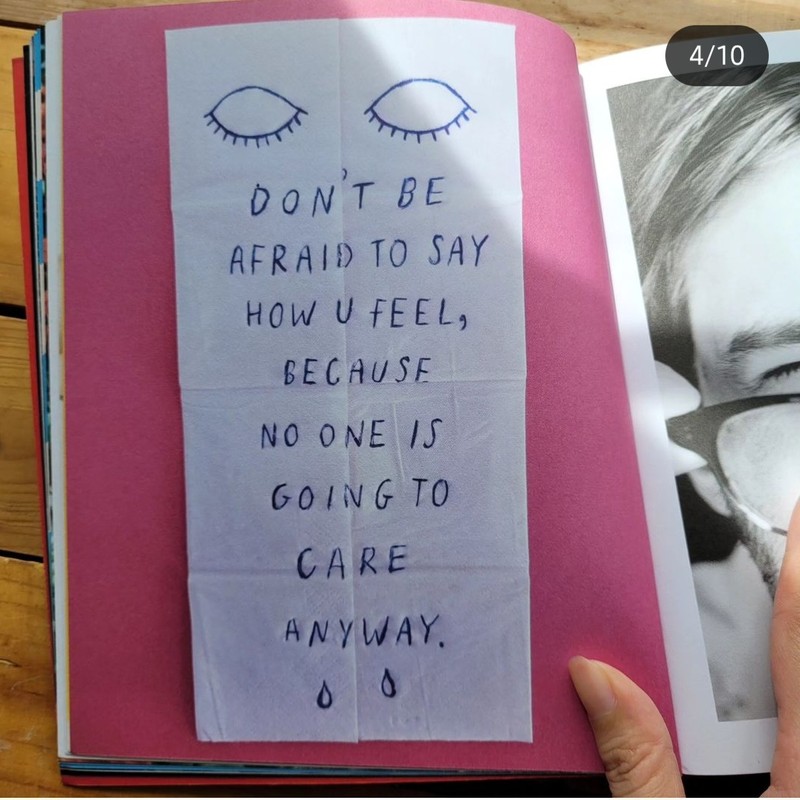 4/10
DON'T BE
AFRAID TO SAY
HOW U FEEL,
BECAUSE
NO ONE IS
GOING TO
CARE
ANYWAY.